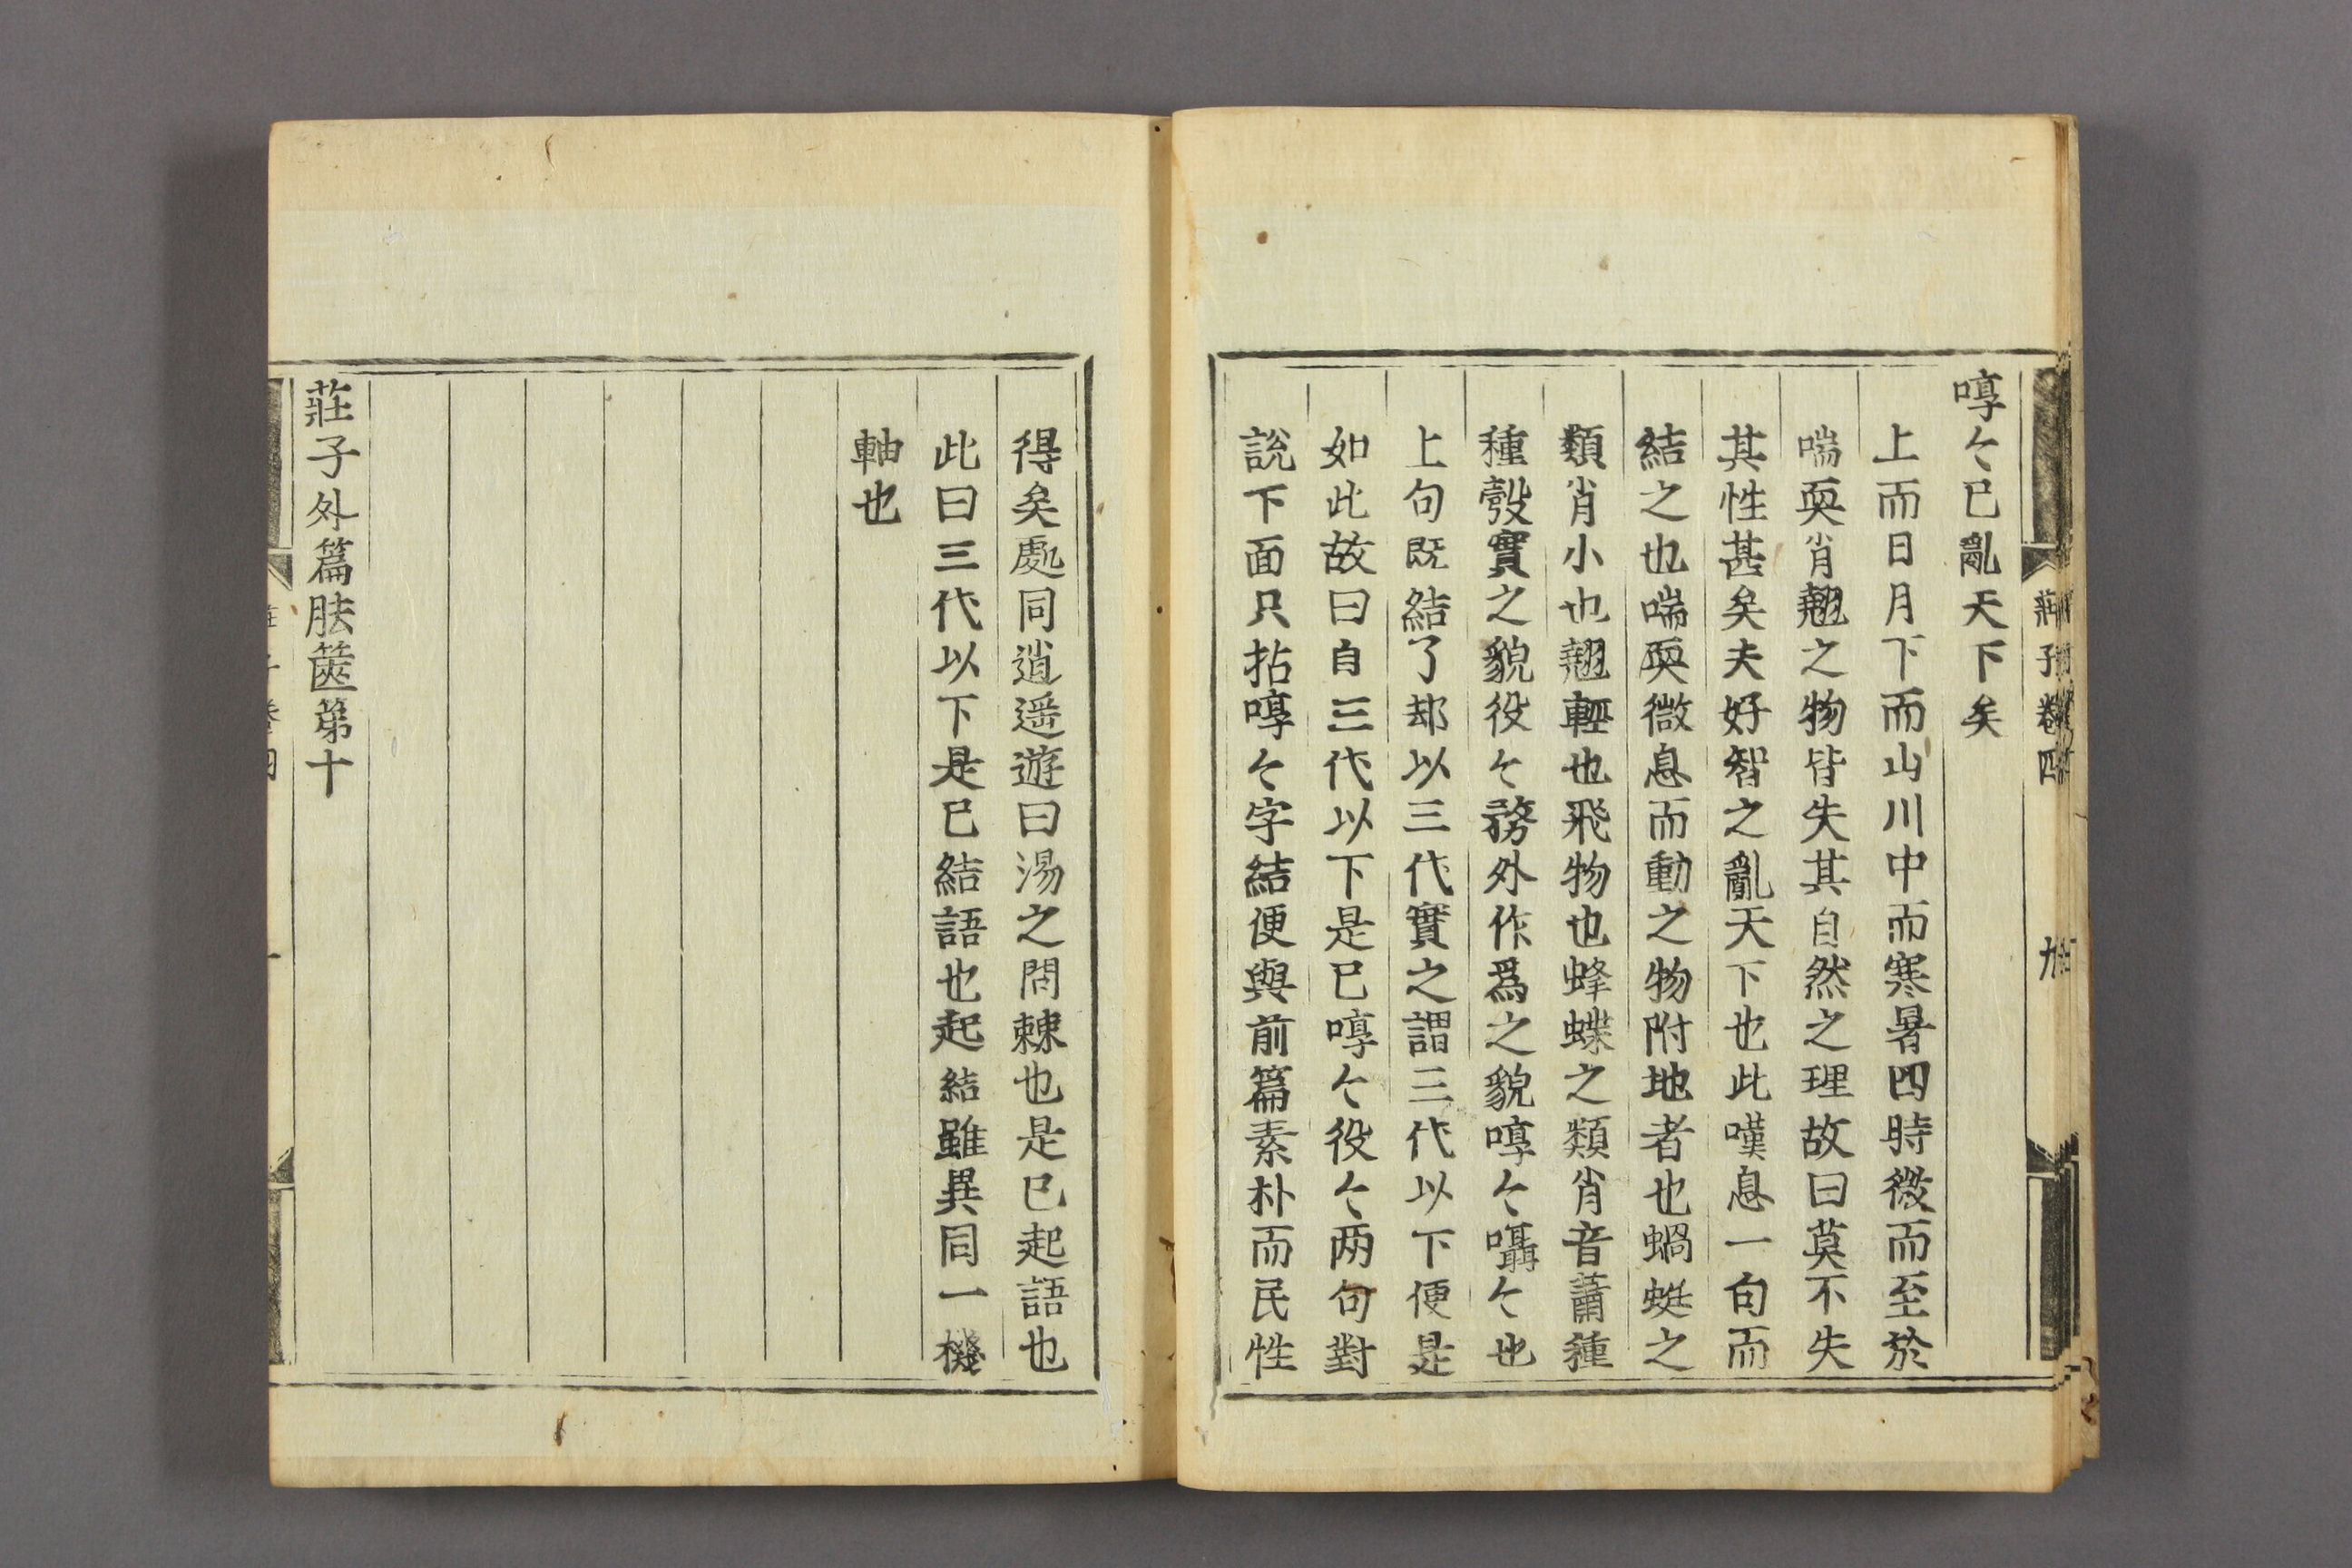 莊子卷四
九
啍々已亂天下矣
上而日月下而山川中而寒暑四時微而至於
喘耎肖翹之物皆失其自然之理故曰莫不失
其性甚矣夫好智之亂天下也此嘆息一句而
結之也喘耎微息而動之物附地者也蝸蜓之
類肖小也翹輕也飛物也蜂蝶之類肖音蕭種
種愨實之貌役々務外作爲之貌啍々囁々也
上句既結了却以三代實之謂三代以下便是
如此故曰自三代以下是已啍々役々两句對
說下面只拈啍々字結便與前篇素朴而民性
得矣處同逍遥遊曰湯之問棘也是已起語也
此曰三代以下是已結語也起結雖異同一機
軸也
莊子外篇胠篋第十